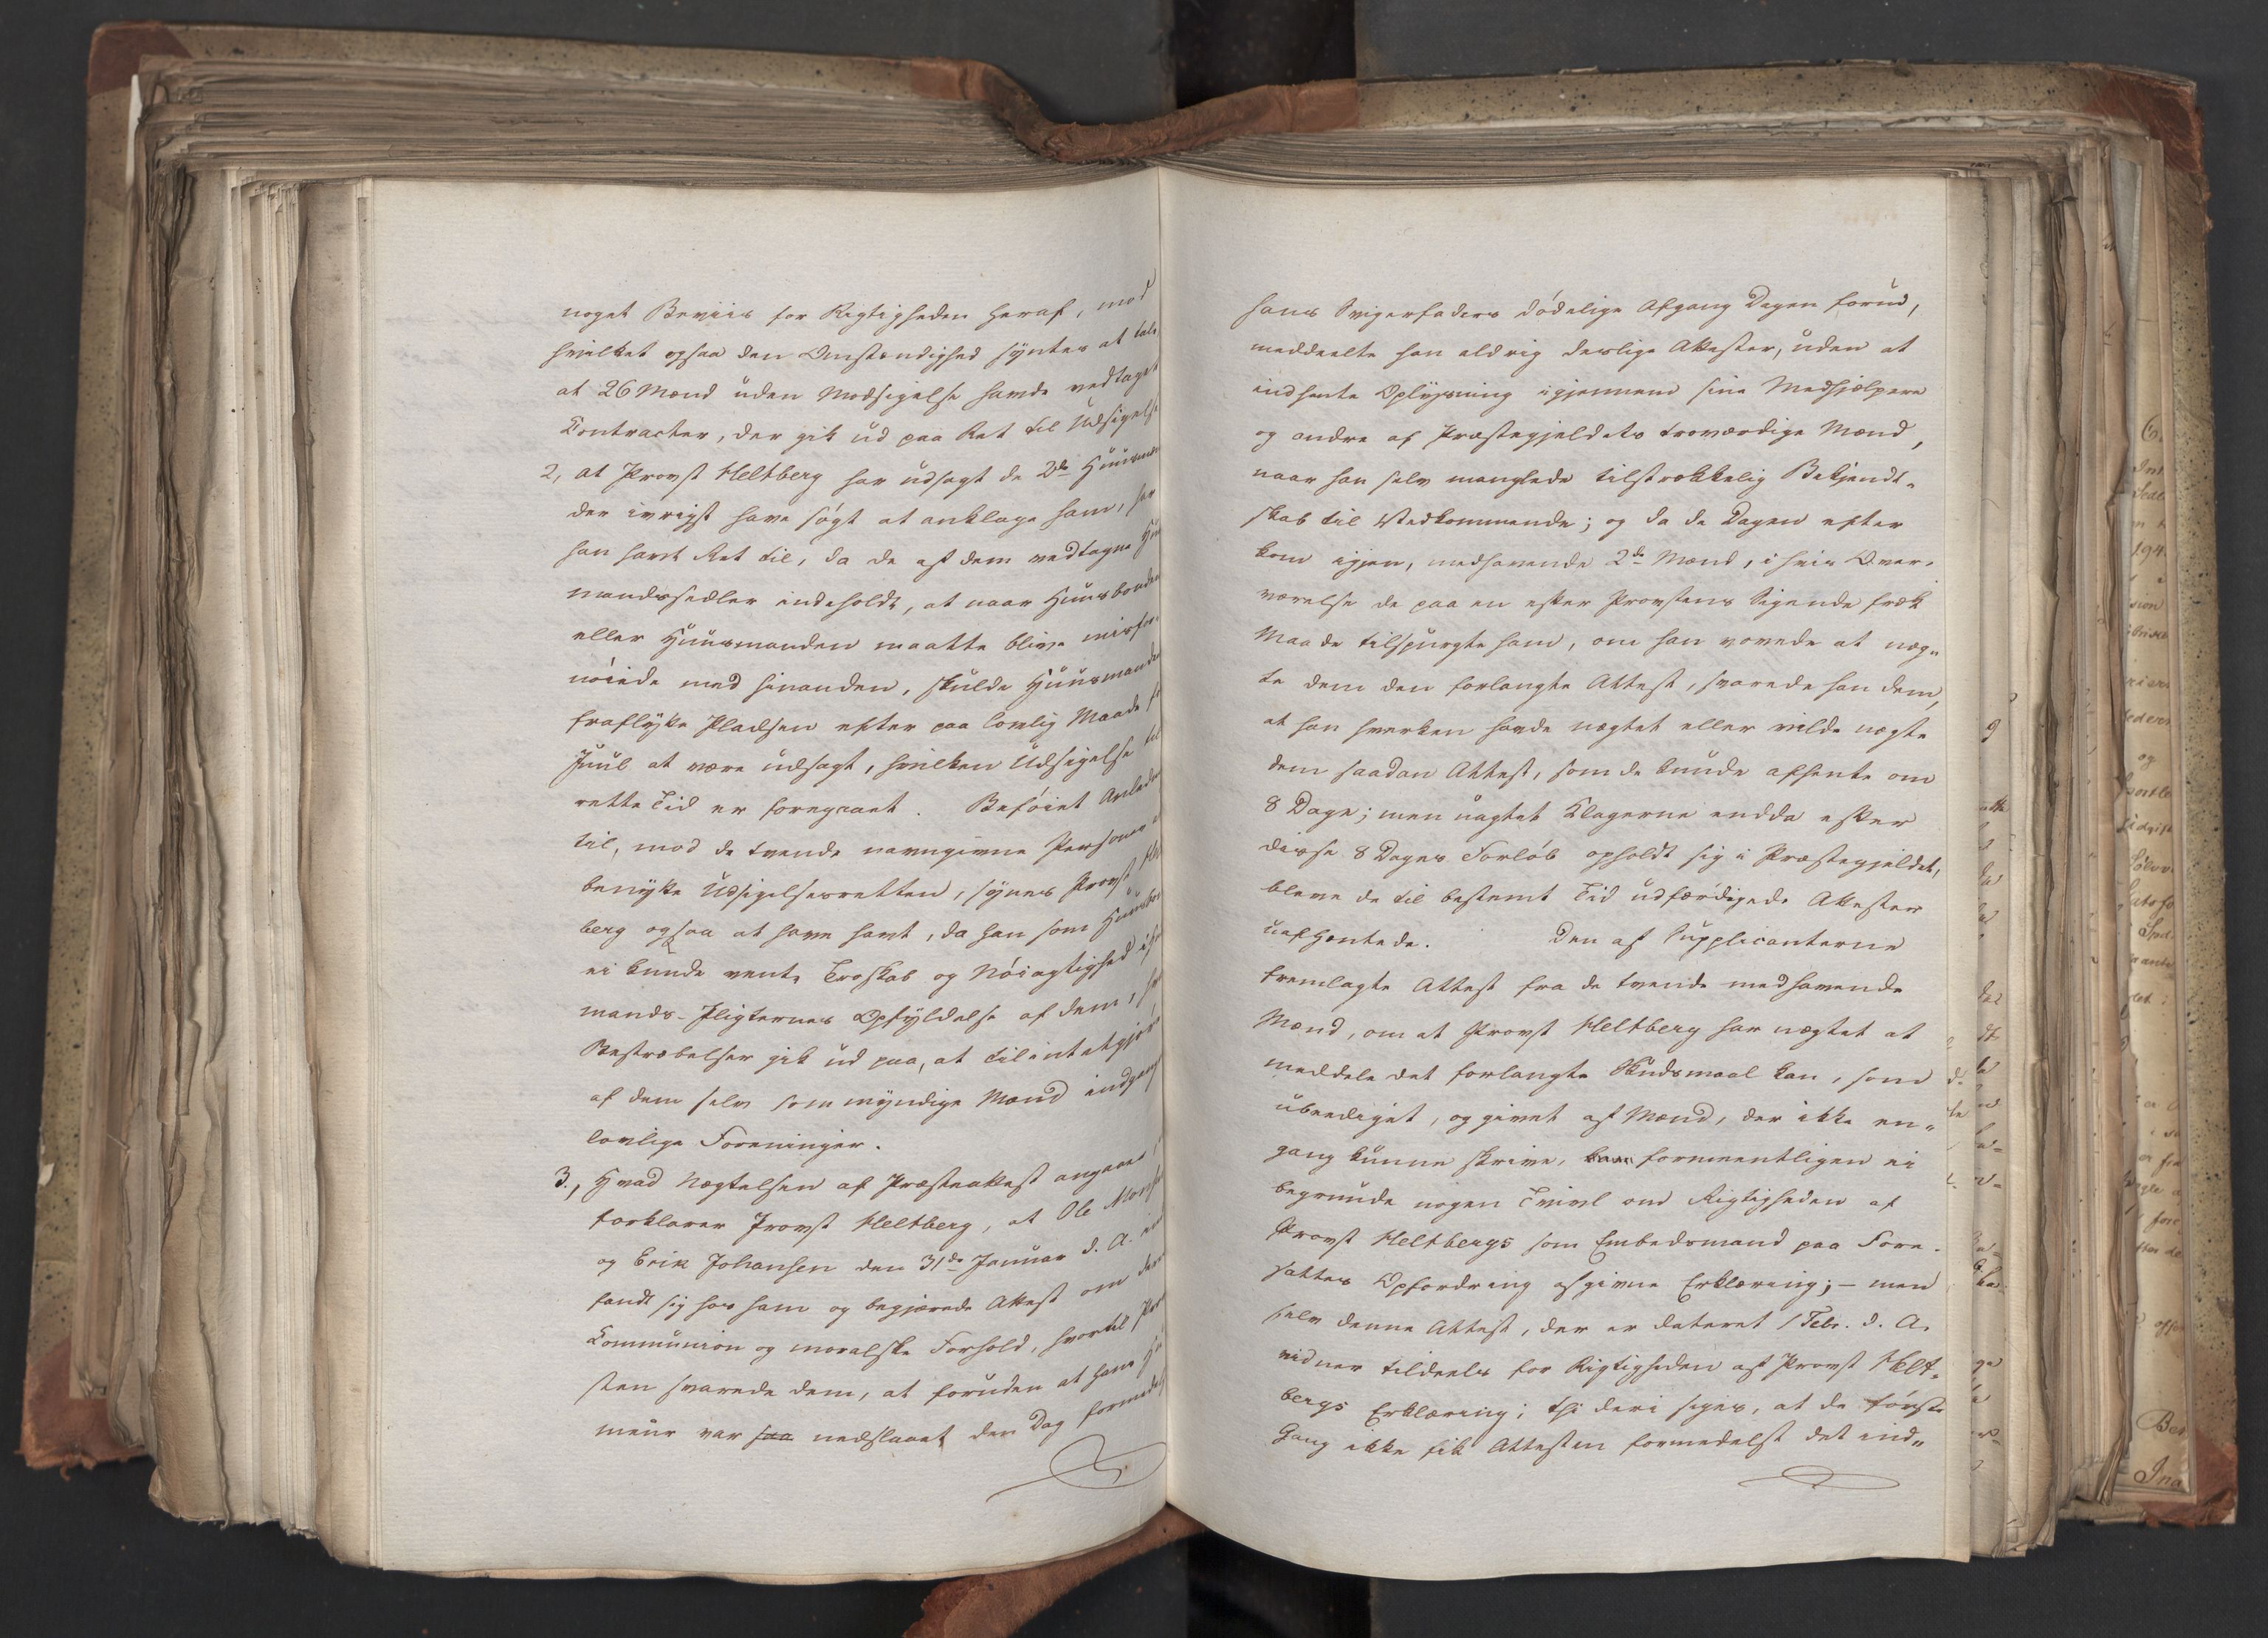 noget Beviis for Rigtigheden heraf, mod
hvilket ogsaa den Omstændighed syntes at tale
at 26 Mænd uden Modsigelse havde vedtaget
Contracter, der gik ud paa Ret til Udsigelse
2, at Provst Heltberg har udsagt de 2de Huusmæn
der ivrigst have søgt at anklage ham, har
han havt Ret til, da de af dem vedtagne
mandssedler indeholdt, at naar Huusbonden
eller Huusmanden maatte blive misfor-
nöiede med hinanden, skulde Huusmanden
fraflytte Pladsen efter paa lovlig Maade
Juul at være udsagt, hvilken Udsigelse til
rette Tid er foregaaet. Beföiet Anled
til, mod de tvende navngivne Personer
benytte Udsigelsesretten, synes Provst
berg ogsaa at have havt, da han som Huusbon
ei kunde vente Troskab og Nöiagtighed i
mands-Pligternes Opfyldelse af dem,
Bestræbelser gik ud paa, at tilintetgjøre
af dem selv som myndige Mænd indgang
lovlige Foreninger.
3., Hvad Nægtelsen af Præsteattest angaaer,
forklarer Provst Heltberg, at Ole
og Erik Johansen den 31de Januar d. A. ind
fandt sig hos ham og begjærede Attest om
Communion og moralske Forhold, hvortil Prov
sten svarede dem, at foruden at hans
meur var saa nedslaaet den Dag formedelst
hans Svigerfaders dödelige Afgang Dagen forud,
meddeelte han aldrig deslige Attester, uden at
indhente Oplysning igjennem sine Medhjælpere
og andre af Præstegjeldets troværdige Mænd,
naar han selv manglede tilstrækkelig Bekjendt-
skab til Vedkommende; og da de Dagen efter
kom igjen, medhavende 2de Mænd, i hvis Over-
værelse de paa en efter Provstens Sigende fræk
Maade tilspurgte ham, om han vovede at næg-
te dem den forlangte Attest, svarede han dem,
at han hverken havde nægtet eller vilde nægte
dem saadan Attest, som de kunde afhente om
8 Dage; men uagtet Klagerne endda efter
disse 8 Dages Forløb opholdt sig i Præstegjeldet,
bleve de til bestemt Tid udfærdigede Attester
uafhentede. Den af Supplicanterne
fremlagte Attest fra de tvende medhavende
Mænd, om at Provst Heltberg har nægtet at
meddele det forlangte Skudsmaal kan, som
ubeediget, og givet af Mænd, der ikke en-
gang kunne skrive, kan formeentligen ei
begrunde nogen Tvivl om Rigtigheden af
Provst Heltbergs som Embedsmand paa Fore-
satte Opfordring afgivne Erklæring; – men
selv denne Attest, der er dateret 1 Febr. d. A.
vidner tildeels for Rigtigheden af Provst Helt-
bergs Erklæring; thi deri siges, at de første
Gang ikke fik Attesten formedelst det ind-